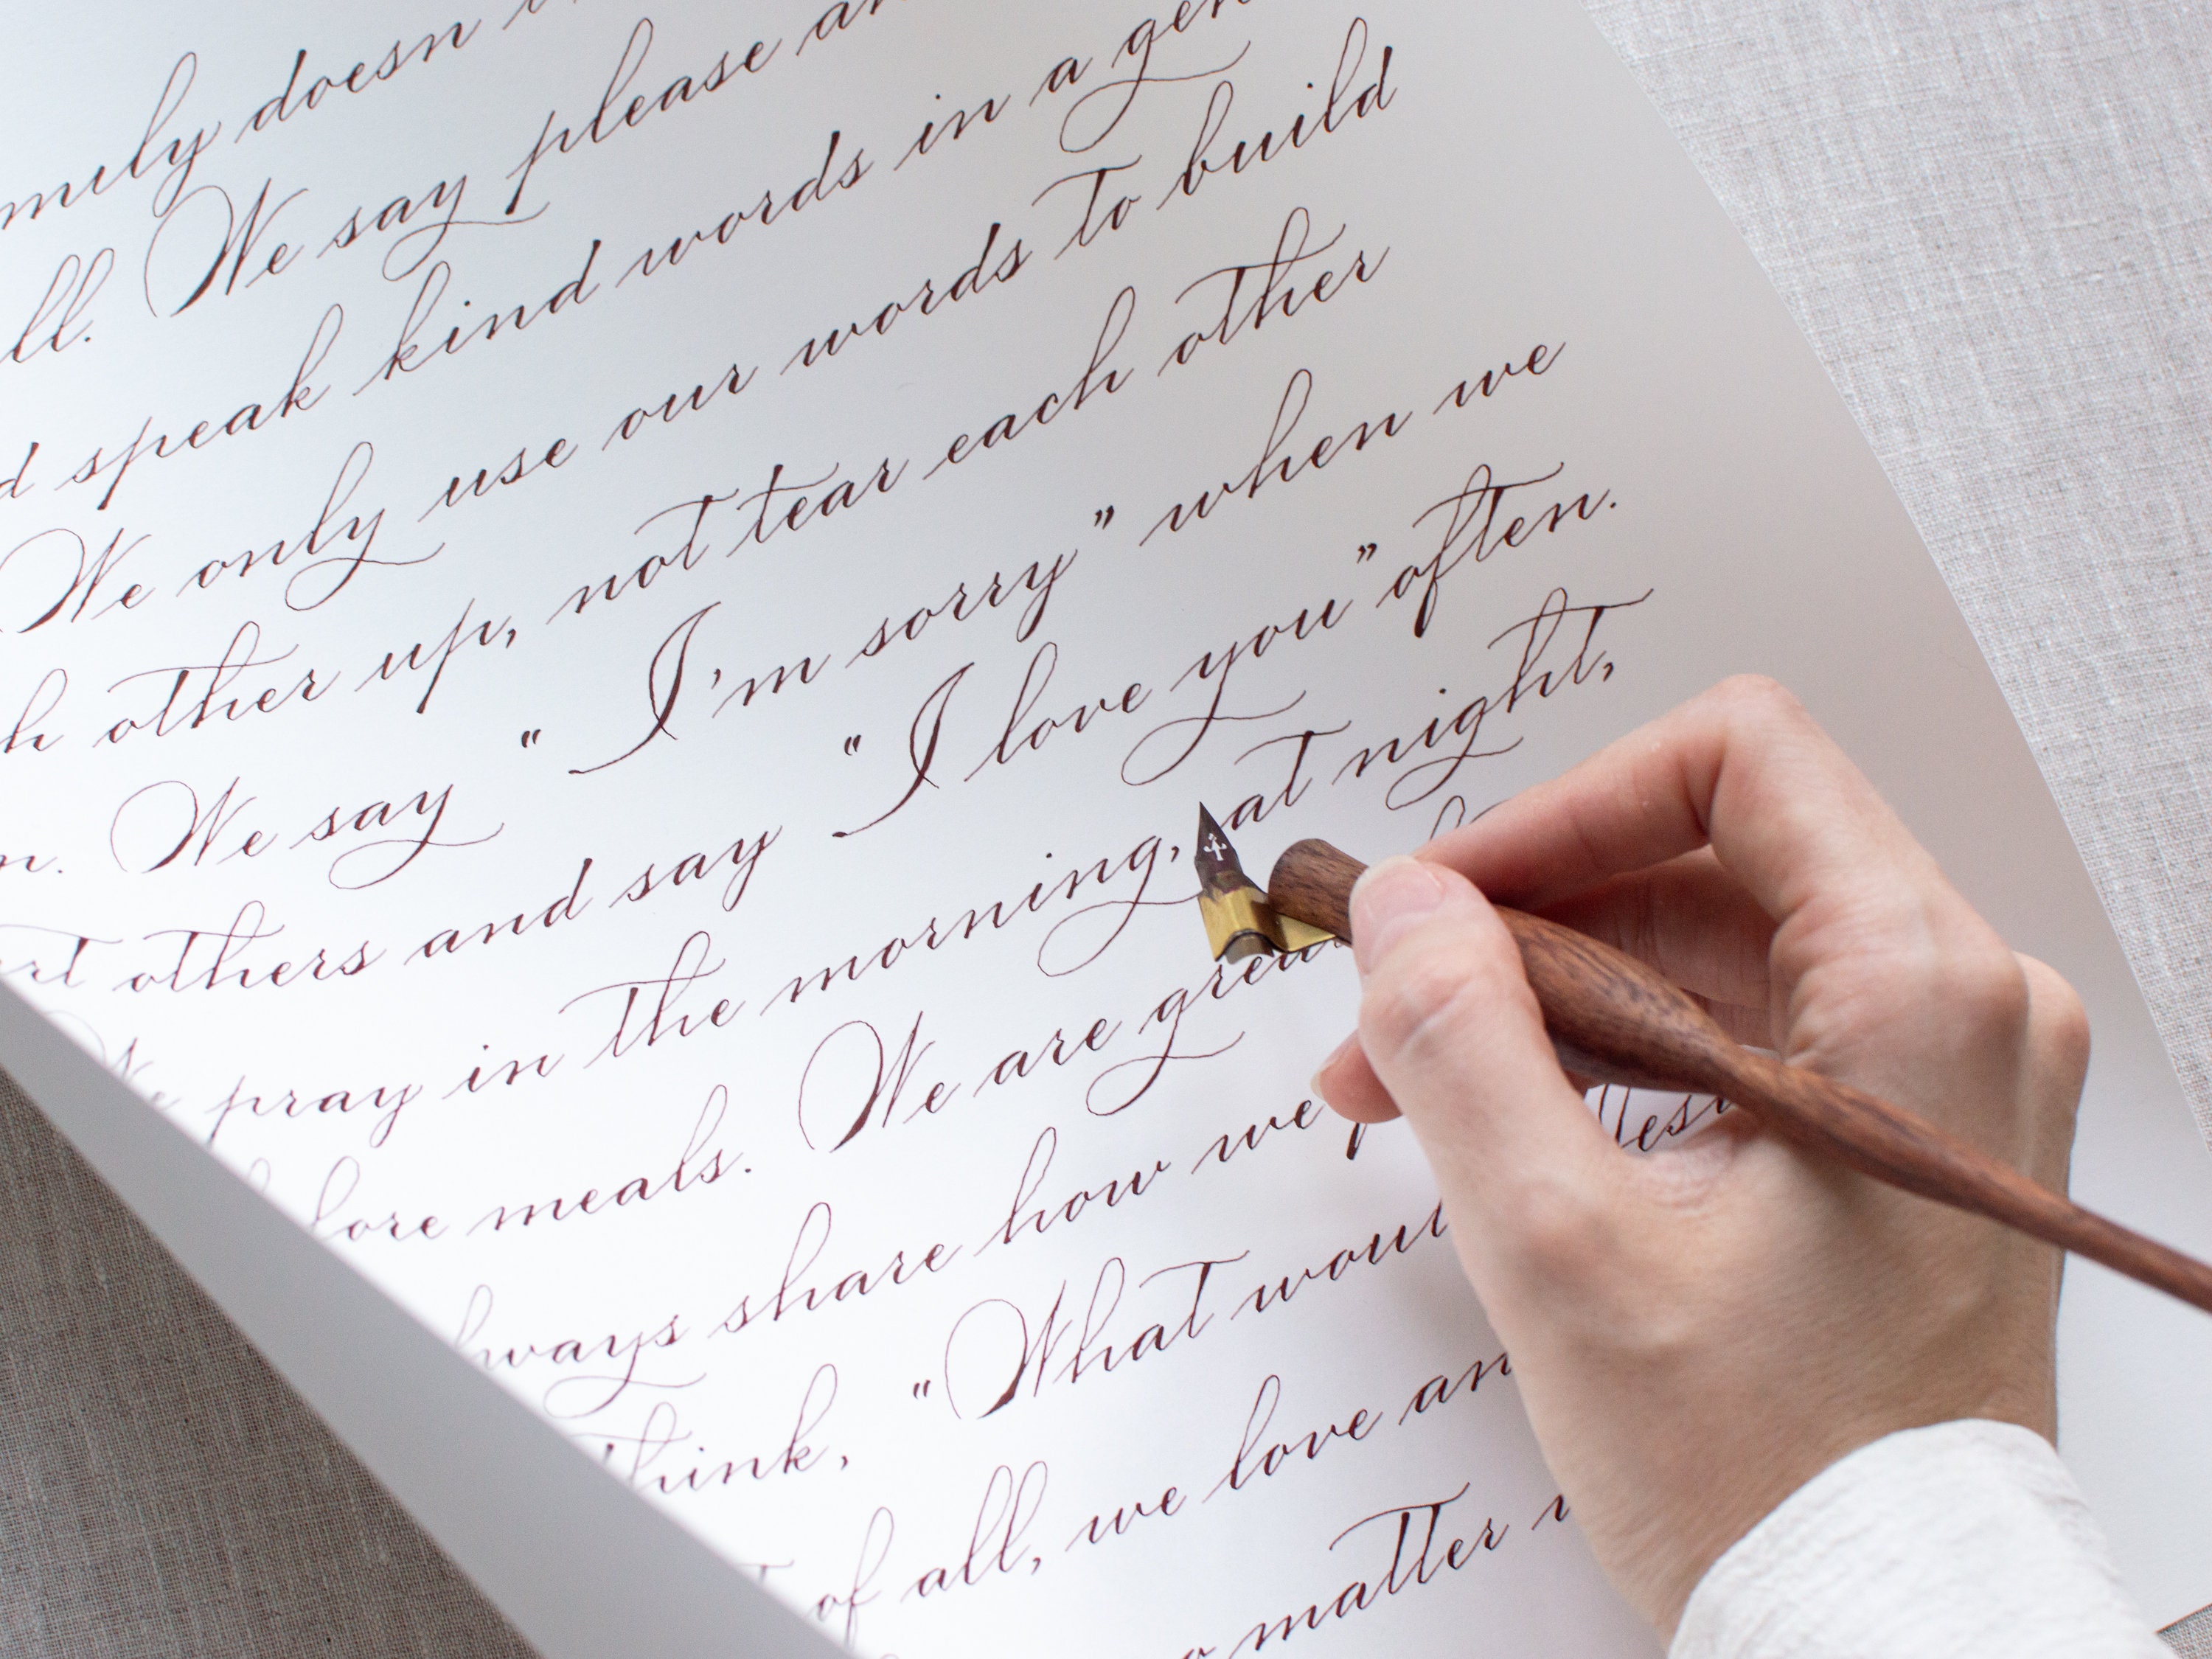 doesn
We say please
speak kind words in a
We only use our words to build
other up, not tear each other
We say "I'm sorry" when we
others and say "I love you" often.
pray in the morning, at night,
meals. We are
share how we
think, "What
of all, we love
matter